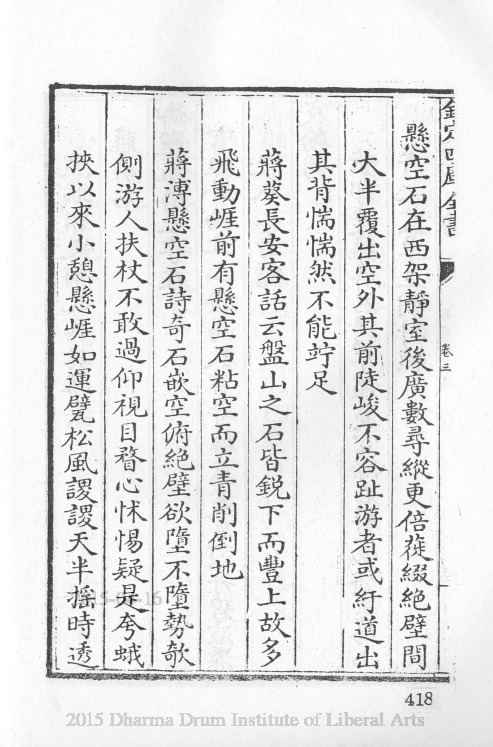 欽定四庫全書
卷三
懸空石在西架靜室後廣數尋縱更倍蓰綴絶壁間
大半覆出空外其前陡峻不容趾游者或紆道出
其背惴惴然不能竚足
蔣葵長安客話云盤山之石皆鋭下而豐上故多
飛動崕前有懸空石粘空而立青削倒地
蔣溥懸空石詩奇石嵌空俯絶壁欲墮不墮勢欹
側游人扶杖不敢過仰視目瞀心怵惕疑是夸蛾
挾以來小憩懸崕如運甓松風謖謖天半揺時透
418
2015 Dharma Drum Institute of Liberal Arts